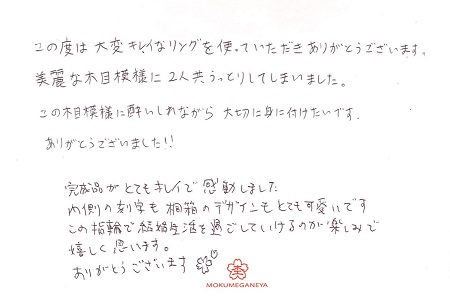 この度は大変キレイなリングを使っていただきありがとうございます。
美麗な木目模様に2人共うっとりしてしまいました。
この木目模様に酔いしれながら 大切に身に付けたいです.
ありがとうございました!!
完成品がとてもキレイで感動しました
内側の刻字も桐箱のデザインもとても可愛いです
この指輪で結婚生活を過ごしていけるのが楽しみで
嬉しく思います。
ありがとうございます
MOKUMEGANEYA